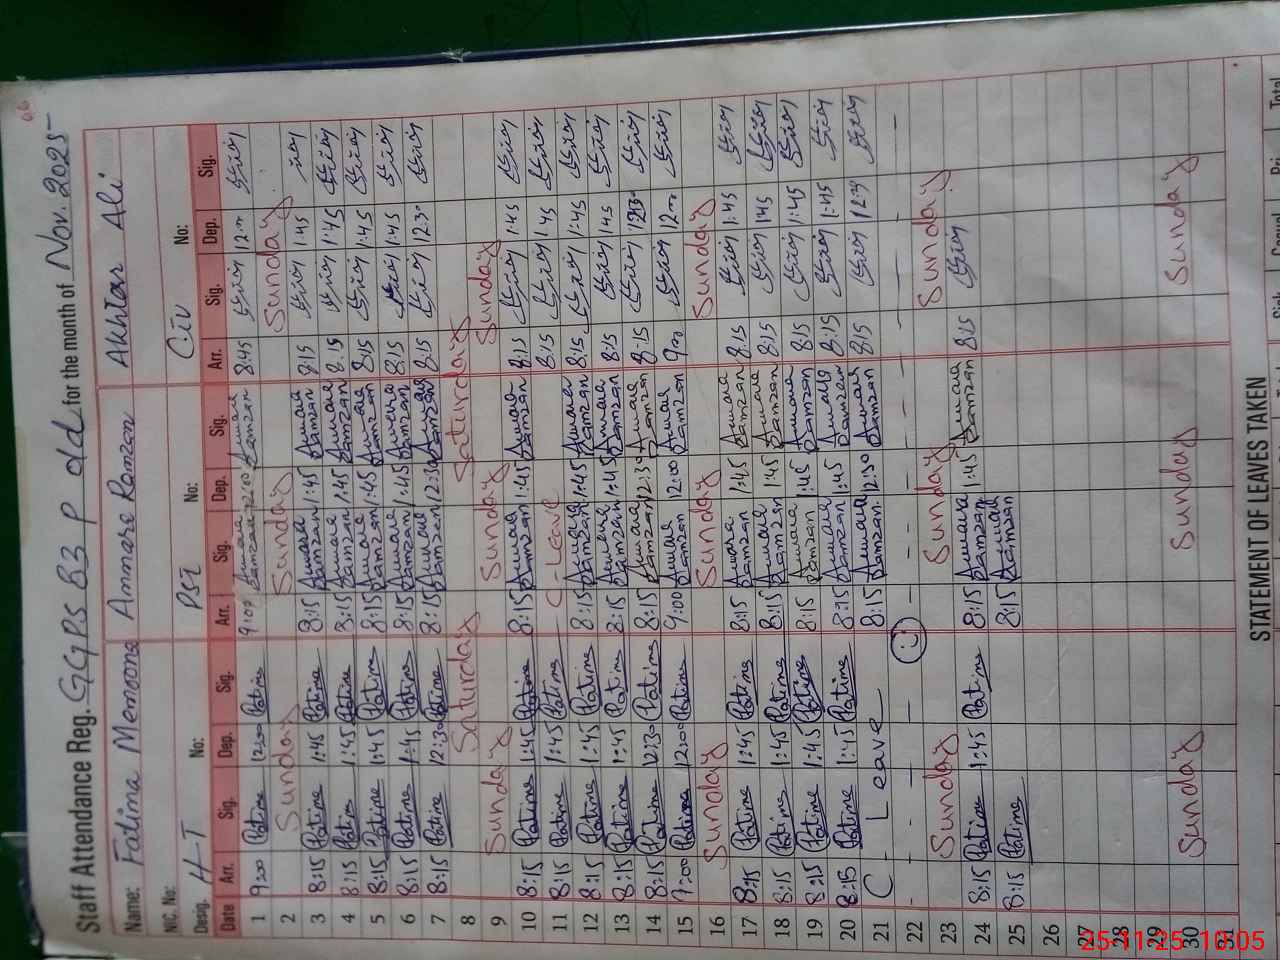 66
Staff Attendance Reg. GGPS 83 P dld for the month of Nov. 2025
Name: Fatima Memoona Ammara Ramzan Akhtar Ali
NIC. No: No: No: No:
Desig. H-T PST Civ
Date Arr. Sig. Dep. Sig. Arr. Sig. Dep. Sig. Arr. Sig. Dep. Sig.
1 9:00 Fatima 12:00 Fatima 9:00 Ammara Ramzan 12:00 Ammara Ramzan 8:45 12:00
2 Sunday Sunday Sunday
3 8:15 Fatima 1:45 Fatima 8:15 Ammara Ramzan 1:45 Ammara Ramzan 8:15 1:45
4 8:15 Fatima 1:45 Fatima 8:15 Ammara Ramzan 1:45 Ammara Ramzan 8:15 1:45
5 8:15 Fatima 1:45 Fatima 8:15 Ammara Ramzan 1:45 Ammara Ramzan 8:15 1:45
6 8:15 Fatima 1:45 Fatima 8:15 Ammara Ramzan 1:45 Ammara Ramzan 8:15 1:45
7 8:15 Fatima 12:30 Fatima 8:15 Ammara Ramzan 12:30 Ammara Ramzan 8:15 12:30
8 Saturday Saturday Saturday
9 Sunday Sunday Sunday
10 8:15 Fatima 1:45 Fatima 8:15 Ammara Ramzan 1:45 Ammara Ramzan 8:15 1:45
11 8:15 Fatima 1:45 Fatima C-Leave 8:15 1:45
12 8:15 Fatima 1:45 Fatima 8:15 Ammara Ramzan 1:45 Ammara Ramzan 8:15 1:45
13 8:15 Fatima 1:45 Fatima 8:15 Ammara Ramzan 1:45 Ammara Ramzan 8:15 1:45
14 8:15 Fatima 12:30 Fatima 8:15 Ammara Ramzan 12:30 Ammara Ramzan 8:15 12:30
15 9:00 Fatima 12:00 Fatima 9:00 Ammara Ramzan 12:00 Ammara Ramzan 9:00 12:00
16 Sunday Sunday Sunday
17 8:15 Fatima 1:45 Fatima 8:15 Ammara Ramzan 1:45 Ammara Ramzan 8:15 1:45
18 8:15 Fatima 1:45 Fatima 8:15 Ammara Ramzan 1:45 Ammara Ramzan 8:15 1:45
19 8:15 Fatima 1:45 Fatima 8:15 Ammara Ramzan 1:45 Ammara Ramzan 8:15 1:45
20 8:15 Fatima 1:45 Fatima 8:15 Ammara Ramzan 1:45 Ammara Ramzan 8:15 1:45
21 C Leave 8:15 Ammara Ramzan 12:30 Ammara Ramzan 8:15 12:30
22
23 Sunday Sunday Sunday
24 8:15 Fatima 1:45 Fatima 8:15 Ammara Ramzan 1:45 Ammara Ramzan 8:15
25 8:15 Fatima 8:15 Ammara Ramzan
26
27
28
29
30 Sunday Sunday Sunday
31
STATEMENT OF LEAVES TAKEN
Total
25-11-25 10:05